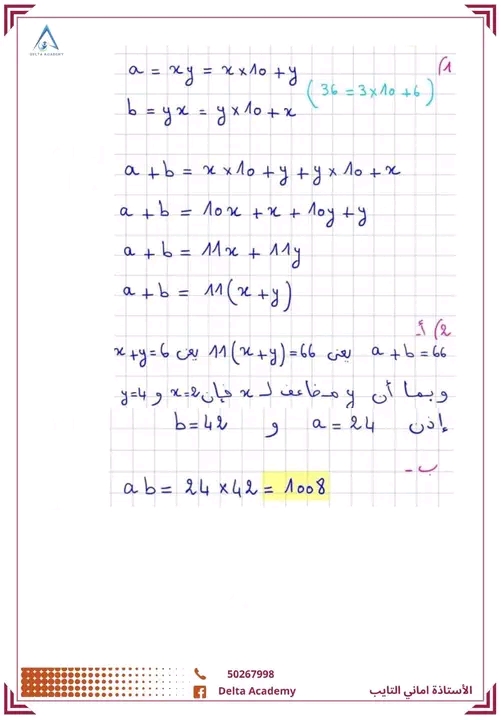 DELTA ACADEMY
1)
a = xy = x×10 + y
(36 = 3×10 + 6)
b = yx = y×10 + x
a + b = x×10 + y + y×10 + x
a + b = 10x + x + 10y + y
a + b = 11x + 11y
a + b = 11(x + y)
2) أ-
a + b = 66 يعني 11(x+y) = 66 يعني x+y = 6
وبما أن y مضاعف لـ x فإن x=2 و y=4
إذن a = 24 و b = 42
ب-
ab = 24 × 42 = 1008
50267998
Delta Academy
الأستاذة اماني التايب